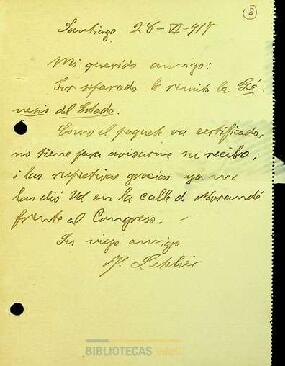 Santiago, 28-VI-917
Mi querido amigo:
Por separado le remito la Gé-
nesis del Estado.
Como el paquete va certificado,
no tiene para avisarme su recibo,
i las respectivas gracias ya me
las dió Ud en la calle de Morandé
frente al Congreso.
Su viejo amigo
V. Letelier
BIBLIOTECAS